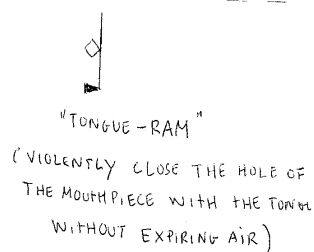 "TONGUE-RAM"
(VIOLENTLY CLOSE THE HOLE OF
THE MOUTHPIECE WITH THE TONGUE
WITHOUT EXPIRING AIR)